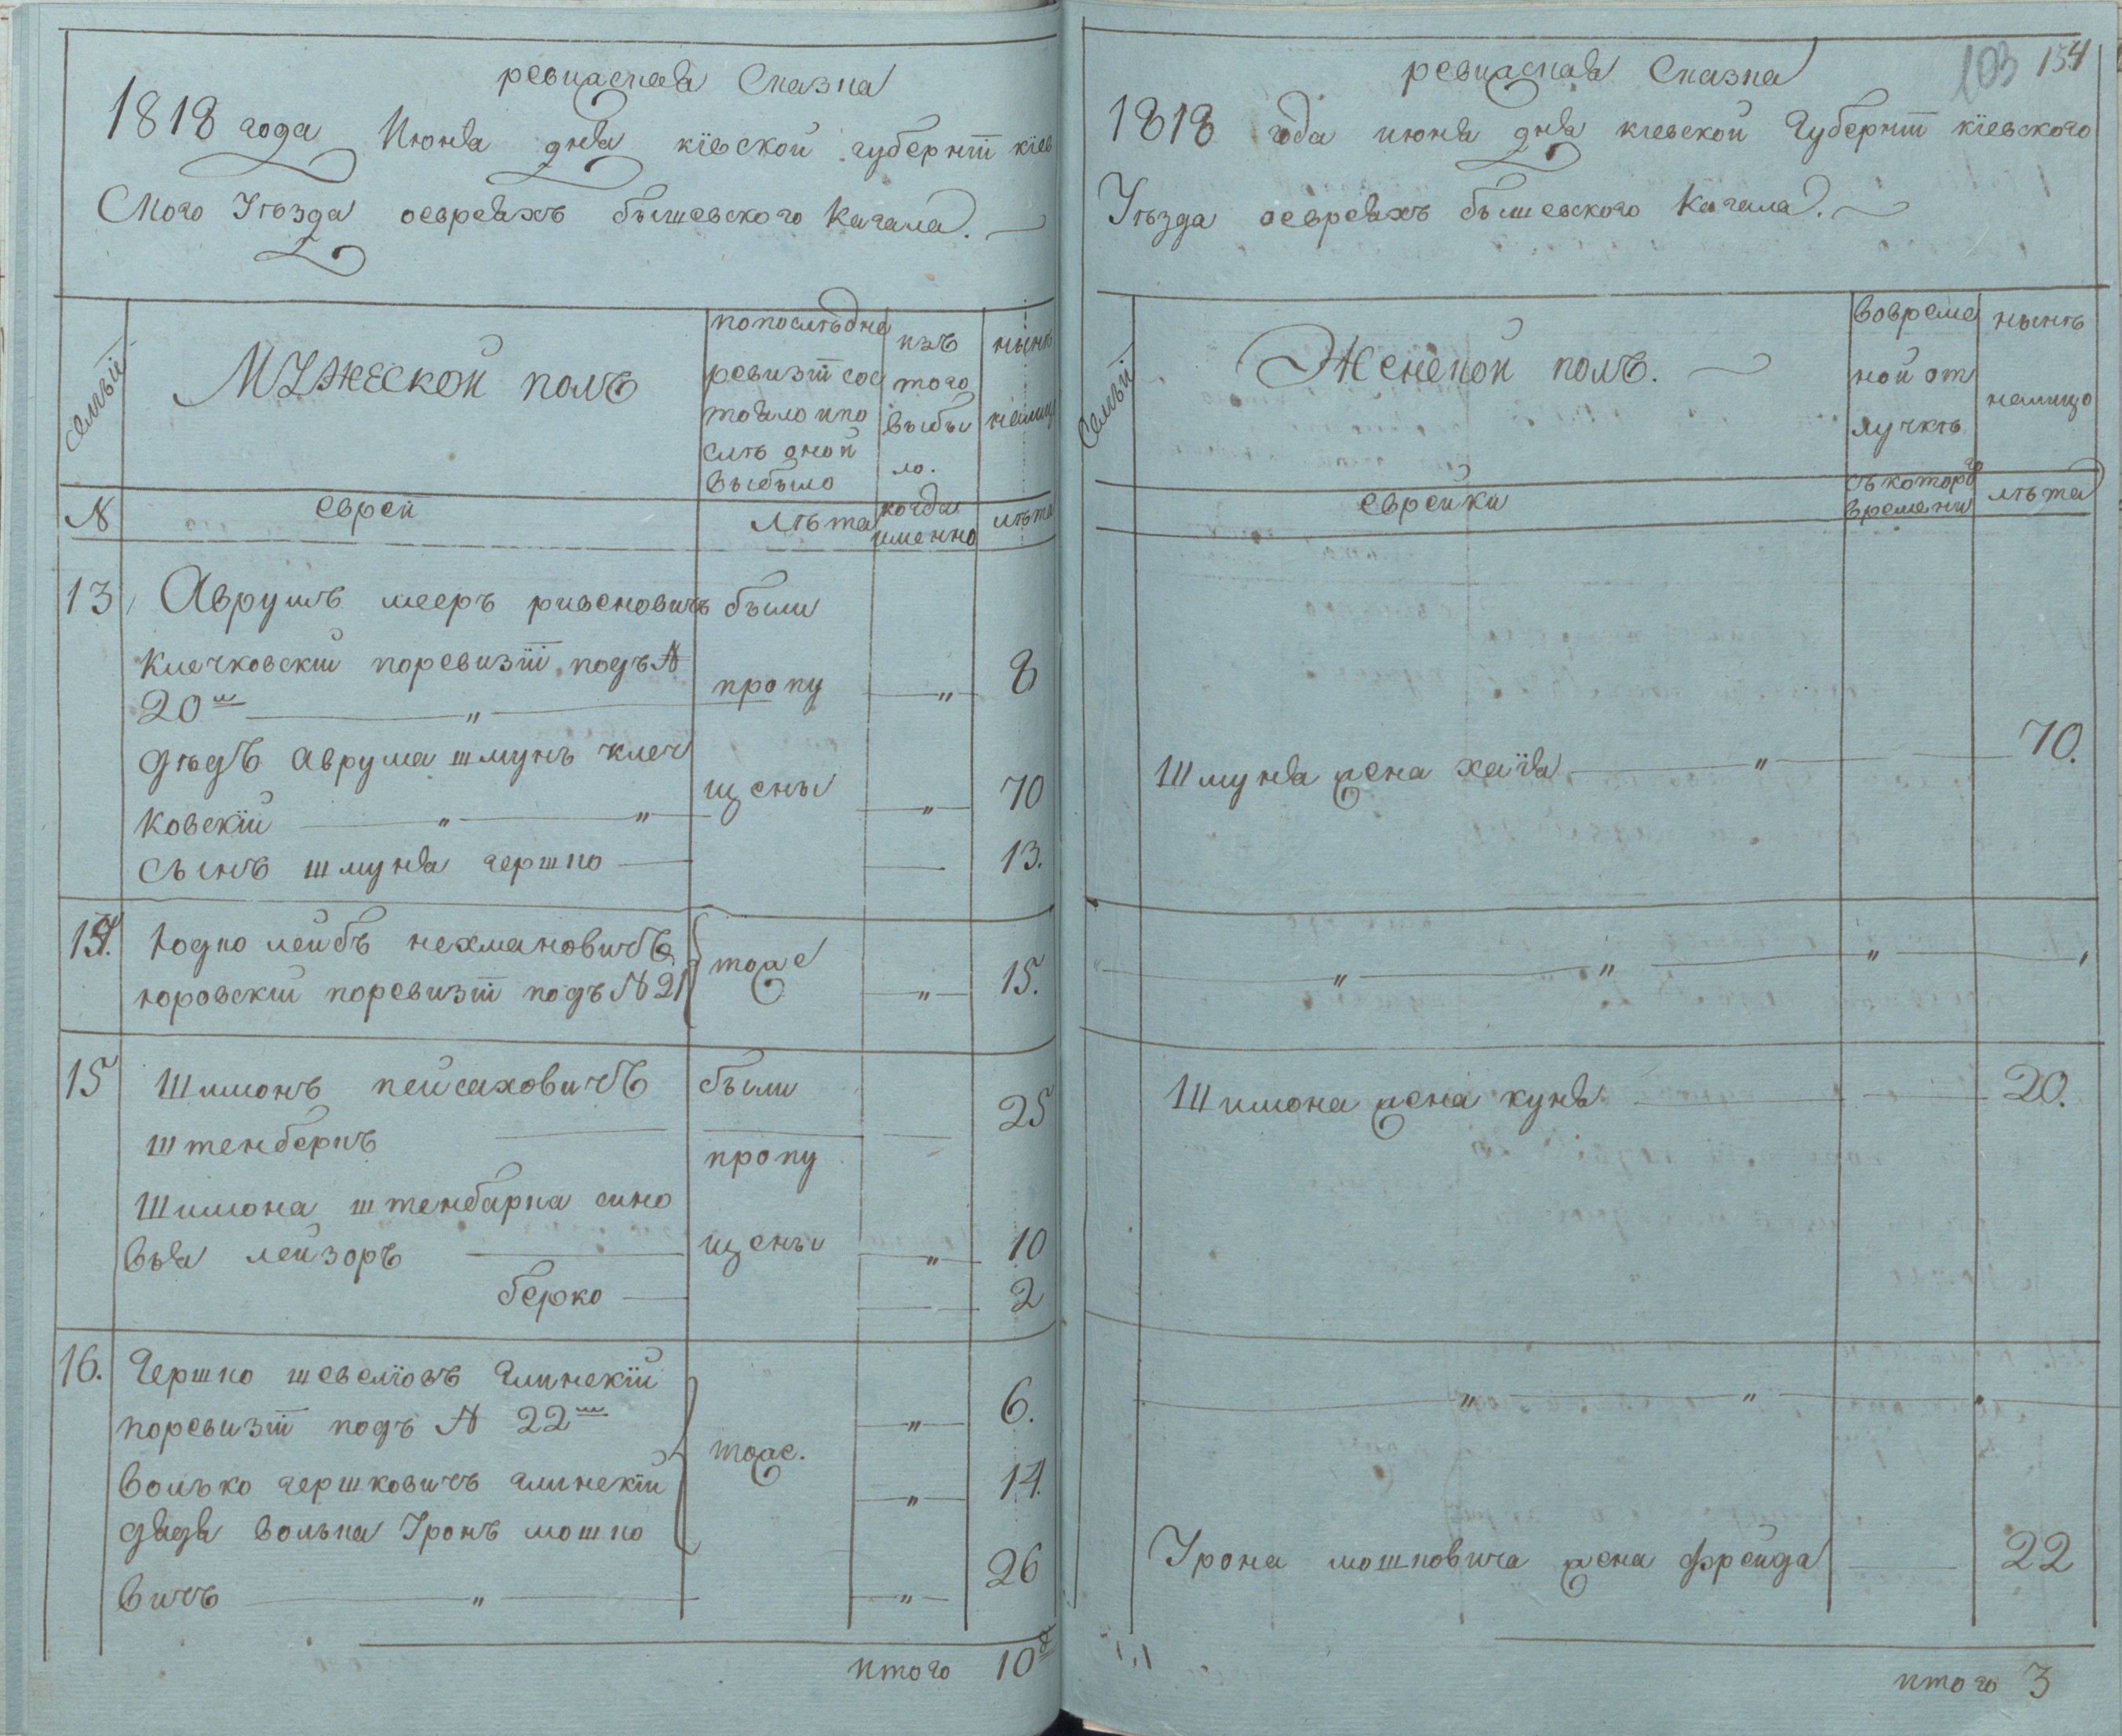 ревизская Сказка
1818 года Июня дня кіевской губерніи кіев
Ского Уѣзда оевреяхъ бышевского Кагала.
Семьи
МУЖЕСКОЙ полъ
попослѣдне
ревизіи сос
тояло ипо
слѣ оной
выбыло
изъ
того
выбы
ло.
нынѣ
налицо
№
еврей
Лѣта
когда
именно
лѣта
13, Аврумъ мееръ ривеновичъ были
Клечковскій поревизіи подъ №
20м " пропу " 8
дѣдъ аврума шмунъ клеч
ковскій " " щены " 70
сынъ шмуня гершко 13.
14. Юдко лейбъ нехмановичъ
юровскій поревизіи подъ № 21 тоже " 15.
15 Шимонъ пейсаховичъ были
штенберкъ пропу 25
Шимона штенбарка сино
вья лейзоръ щены " 10
берко 2
16. Гершко шевеліовъ глинскій
поревизіи подъ № 22м " 6.
Волько гершковичъ глинскій тоже. " 14.
дядя волька Уронъ мошко
вичъ " " 26
итого 10
103 154
ревизская Сказка
1818 года июня дня кіевской Губерніи кіевского
Уѣзда оевреяхъ бышевского Кагала.
Семьи
Женской полъ.
вовреме
ной от
лучкѣ
нынѣ
налицо
еврейки
съ которо
времени
лѣта
Шмуня жена хаія " 70.
" " " "
Шимона жена куня 20.
" " "
Урона мошковича жена фрейда 22
итого 3